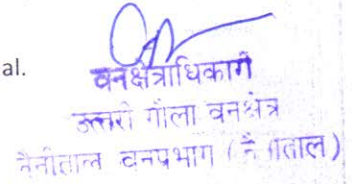 al.
वनक्षेत्राधिकारी
उत्तरी गौला वनक्षेत्र
नैनीताल वनप्रभाग (नैनीताल)